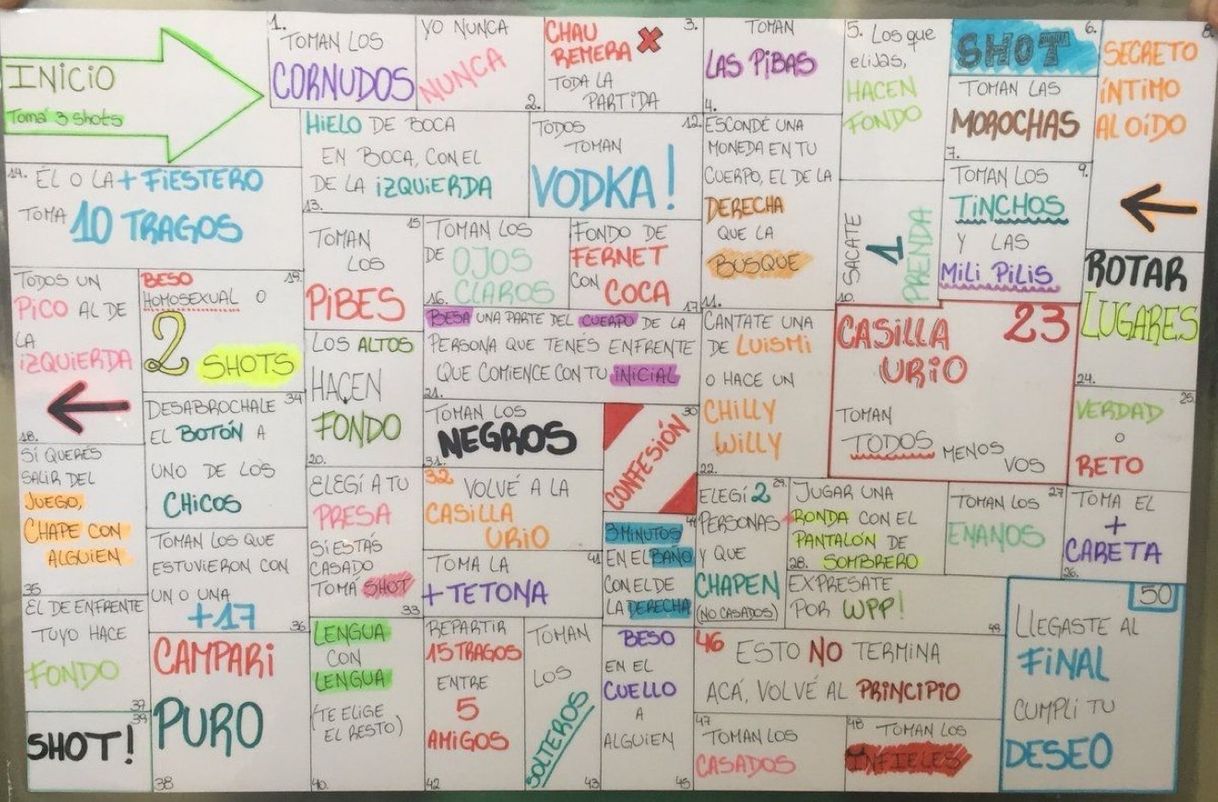 INICIO
Tomá 3 shots
1.
TOMAN LOS
CORNUDOS
YO NUNCA
NUNCA
2.
3.
CHAU
REMERA X
TODA LA
PARTIDA
TOMAN
LAS PIBAS
4.
5. Los que
elijas,
HACEN
FONDO
6.
SHOT
TOMAN LAS
MOROCHAS
7.
8.
SECRETO
ÍNTIMO
AL OÍDO
9.
TOMAN LOS
TINCHOS
Y LAS
MILI PILIS
SACATE
1
PRENDA
10.
ESCONDÉ UNA
MONEDA EN TU
CUERPO, EL DE LA
DERECHA
QUE LA
BUSQUE
11.
12.
TODOS
TOMAN
VODKA!
HIELO DE BOCA
EN BOCA, CON EL
DE LA IZQUIERDA
13.
14. ÉL O LA + FIESTERO
TOMA 10 TRAGOS
15
TOMAN
LOS
PIBES
TOMAN LOS
DE OJOS
CLAROS
16.
FONDO DE
FERNET
CON COCA
17
TODOS UN
PICO AL DE
LA
IZQUIERDA
18.
19.
BESO
HOMOSEXUAL O
2 SHOTS
LOS ALTOS
HACEN
FONDO
20.
BESA UNA PARTE DEL CUERPO DE LA
PERSONA QUE TENES ENFRENTE
QUE COMIENCE CON TU INICIAL
21.
CANTATE UNA
DE LUISMI
O HACE UN
CHILLY
WILLY
22.
CASILLA 23
URIO
TOMAN
TODOS MENOS
VOS
ROTAR
LUGARES
24.
25.
VERDAD
O
RETO
TOMA EL
+
CARETA
26.
27
TOMAN LOS
ENANOS
JUGAR UNA
RONDA CON EL
PANTALÓN DE
28. SOMBRERO
29.
ELEGÍ 2
PERSONAS
Y QUE
CHAPEN
(NO CASADOS)
30
CONFESIÓN
TOMAN LOS
NEGROS
31.
32 VOLVÉ A LA
CASILLA
URIO
ELEGÍ A TU
PRESA
SI ESTAS
CASADO
TOMÁ SHOT
33
34
DESABROCHALE
EL BOTÓN A
UNO DE LOS
CHICOS
SI QUERÉS
SALIR DEL
JUEGO,
CHAPE CON
ALGUIEN
35
TOMAN LOS QUE
ESTUVIERON CON
UN O UNA
+17
36
EL DE ENFRENTE
TUYO HACE
FONDO
37
CAMPARI
PURO
38
39
SHOT!
LENGUA
CON
LENGUA
(TE ELIGE
EL RESTO)
40.
41
TOMA LA
+ TETONA
REPARTIR
15 TRAGOS
ENTRE
5
AMIGOS
42
TOMAN
LOS
SOLTEROS
43
44
3 MINUTOS
EN EL BAÑO
CON EL DE
LA DERECHA
BESO
EN EL
CUELLO
A
ALGUIEN
45
46 ESTO NO TERMINA
ACÁ, VOLVÉ AL PRINCIPIO
47
TOMAN LOS
CASADOS
48 TOMAN LOS
INFIELES
EXPRESATE
POR WPP!
49
50
LLEGASTE AL
FINAL
CUMPLI TU
DESEO